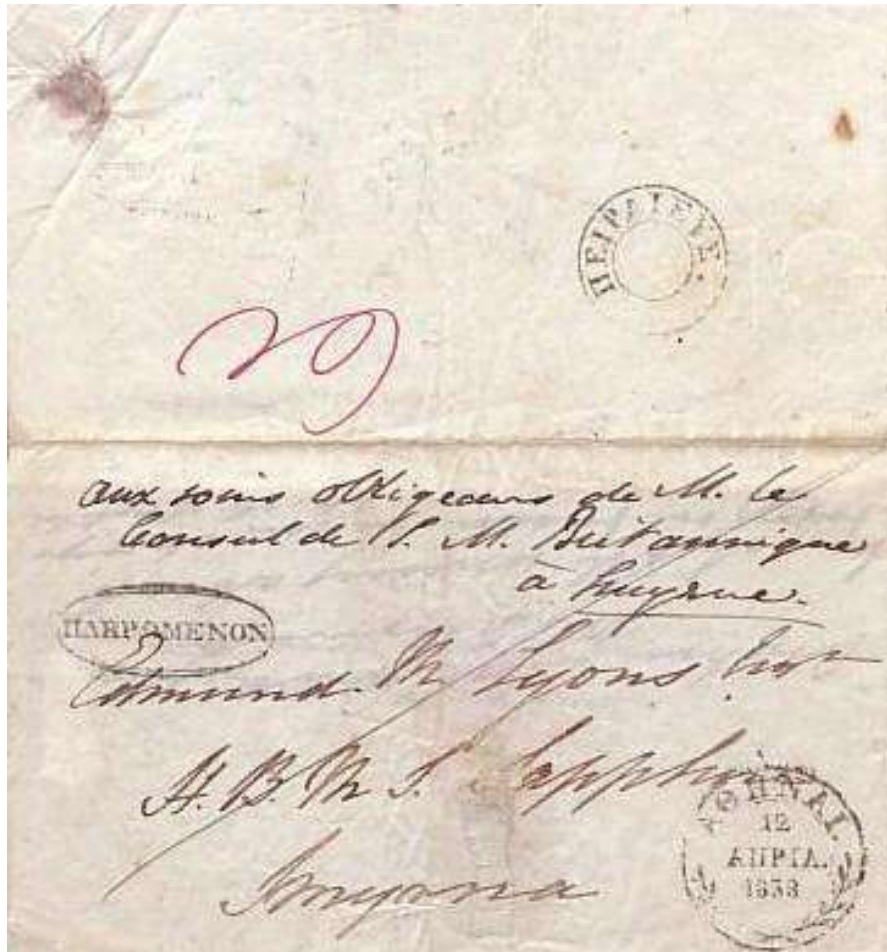 ΠΕΙΡΑΙΕΥΣ.
aux soins obligeans de M. le
Consul de S. M. Britannique
à Smyrne.
ΠΛΗΡΩΜΕΝΟΝ
Edmund M Lyons Esqre
H. B. M. S. Sapphire
Smyrna
ΑΘΗΝΑΙ.
12
ΑΠΡΙΛ.
1838